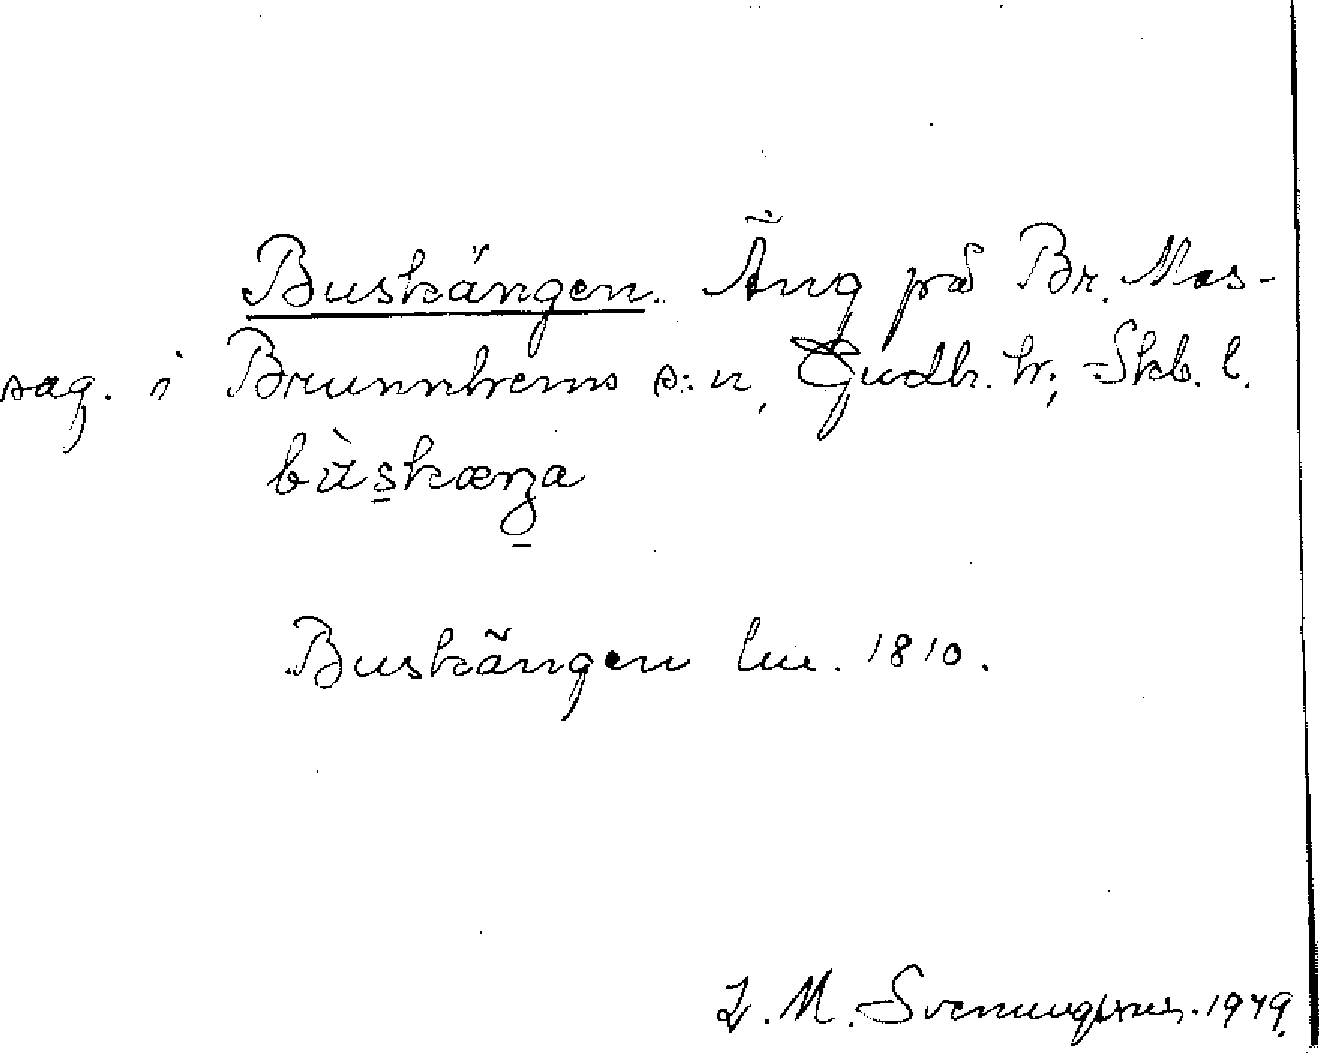 Buskängen. Äng på Br. Mos-
sag. i Brunnhems s:n, Gudh. hr; Skb. l.
bùskæŋa
Buskängen lm. 1810.
M. Svenungsson. 1949.